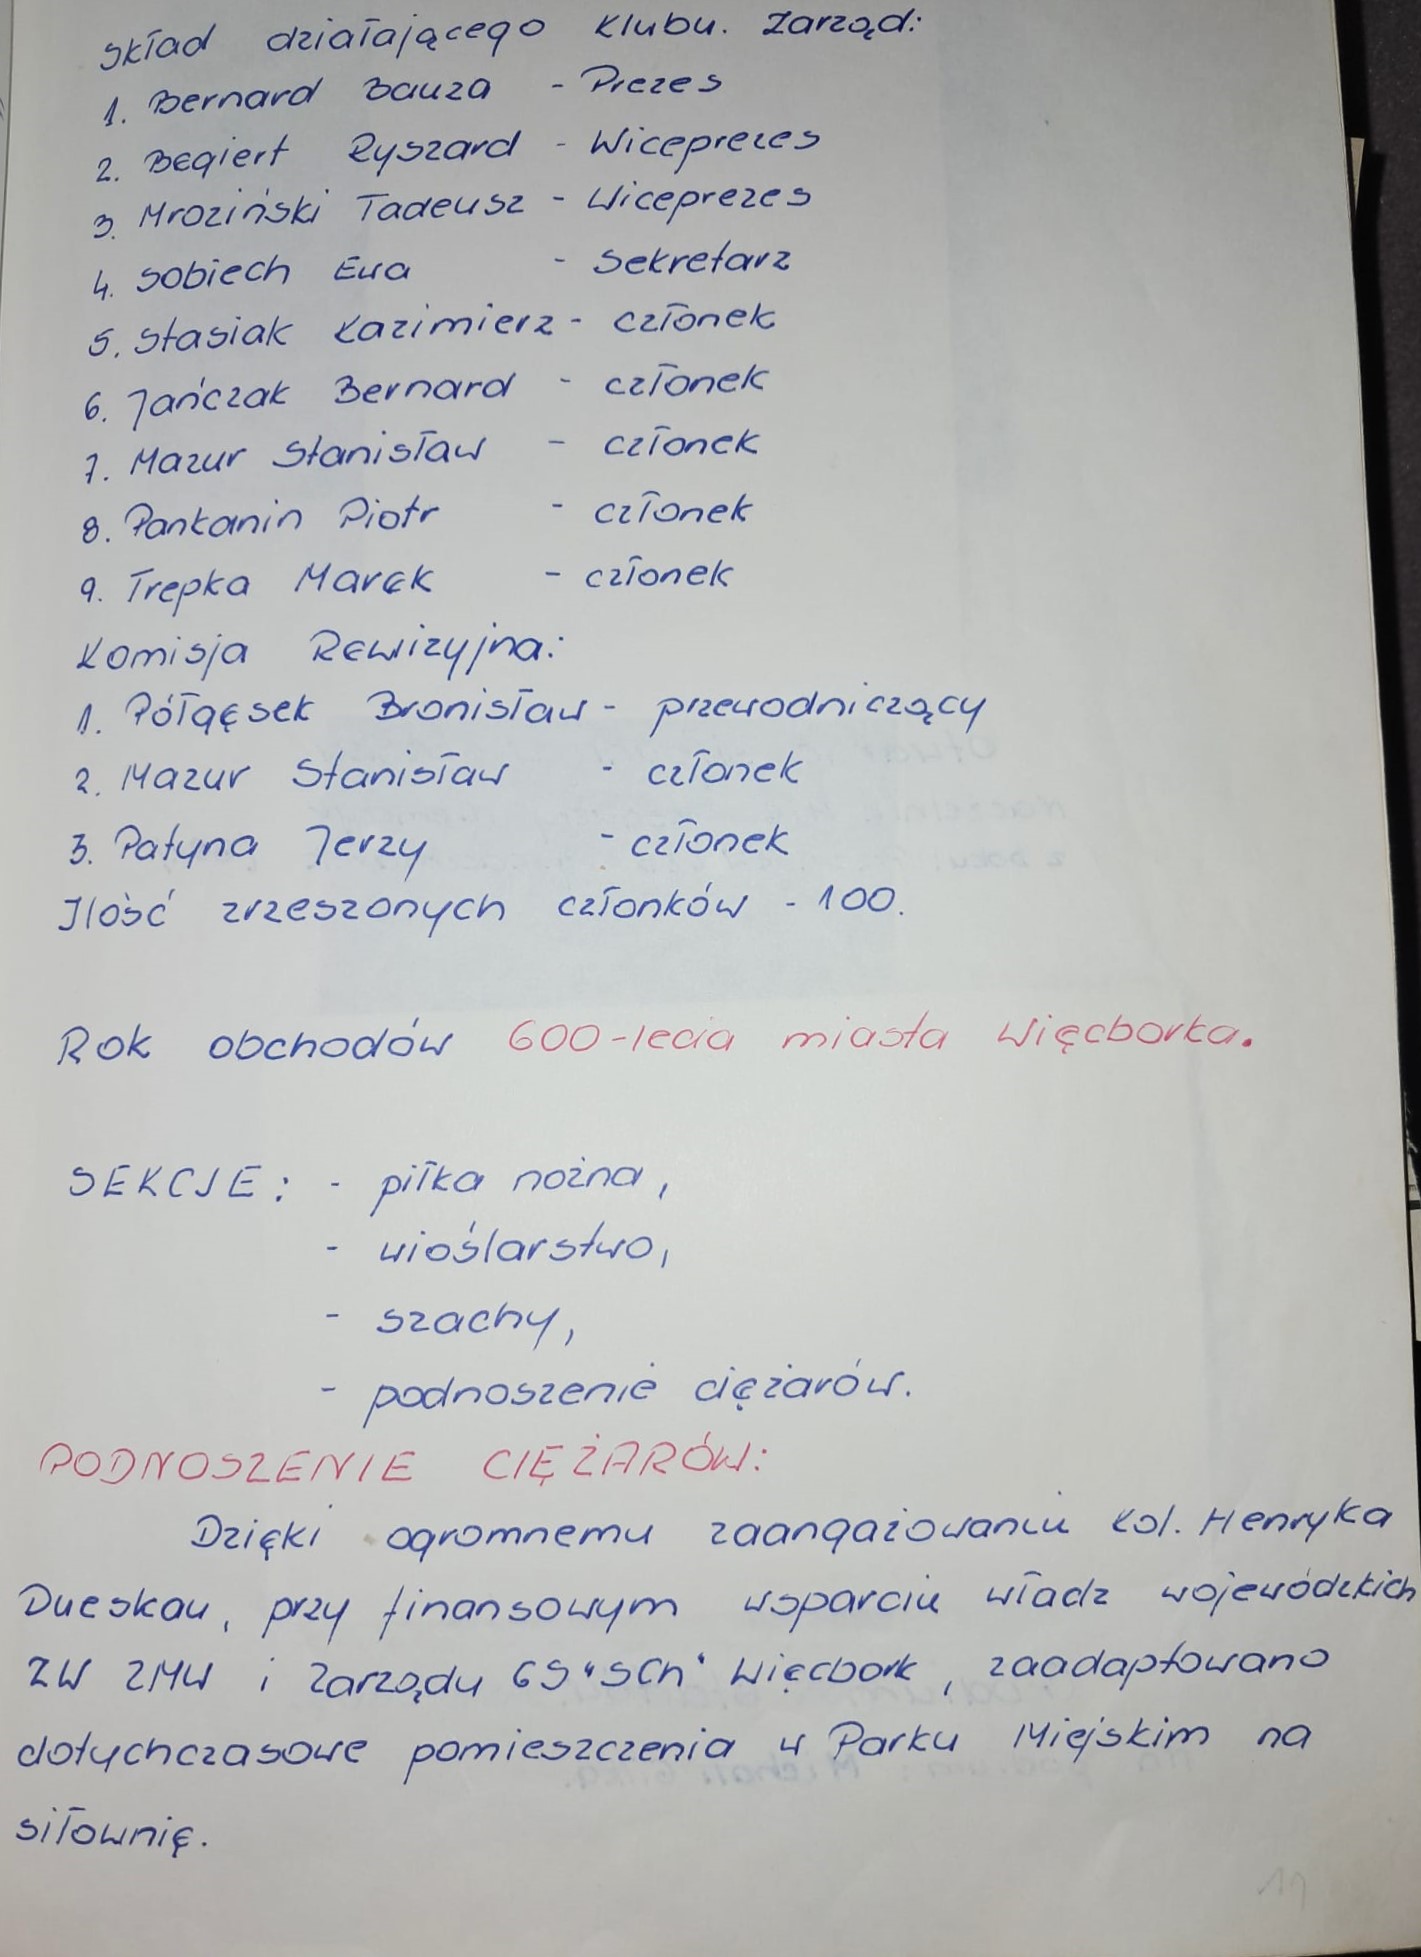 Skład działającego klubu. Zarząd:
1. Bernard Bauza - Prezes
2. Begiert Ryszard - Wiceprezes
3. Mroziński Tadeusz - Wiceprezes
4. Sobiech Ewa - Sekretarz
5. Stasiak Kazimierz - członek
6. Jańczak Bernard - członek
7. Mazur Stanisław - członek
8. Pankanin Piotr - członek
9. Trepka Marek - członek
Komisja Rewizyjna:
1. Półgęsek Bronisław - przewodniczący
2. Mazur Stanisław - członek
3. Patyna Jerzy - członek
Ilość zrzeszonych członków - 100.
Rok obchodów 600-lecia miasta Więcborka.
SEKCJE: - piłka nożna,
- wioślarstwo,
- szachy,
- podnoszenie ciężarów.
PODNOSZENIE CIĘŻARÓW:
Dzięki ogromnemu zaangażowaniu kol. Henryka
Dueskau, przy finansowym wsparciu władz wojewódzkich
ZW ZMW i Zarządu GS "SCh" Więcbork, zaadaptowano
dotychczasowe pomieszczenia w Parku Miejskim na
siłownię.